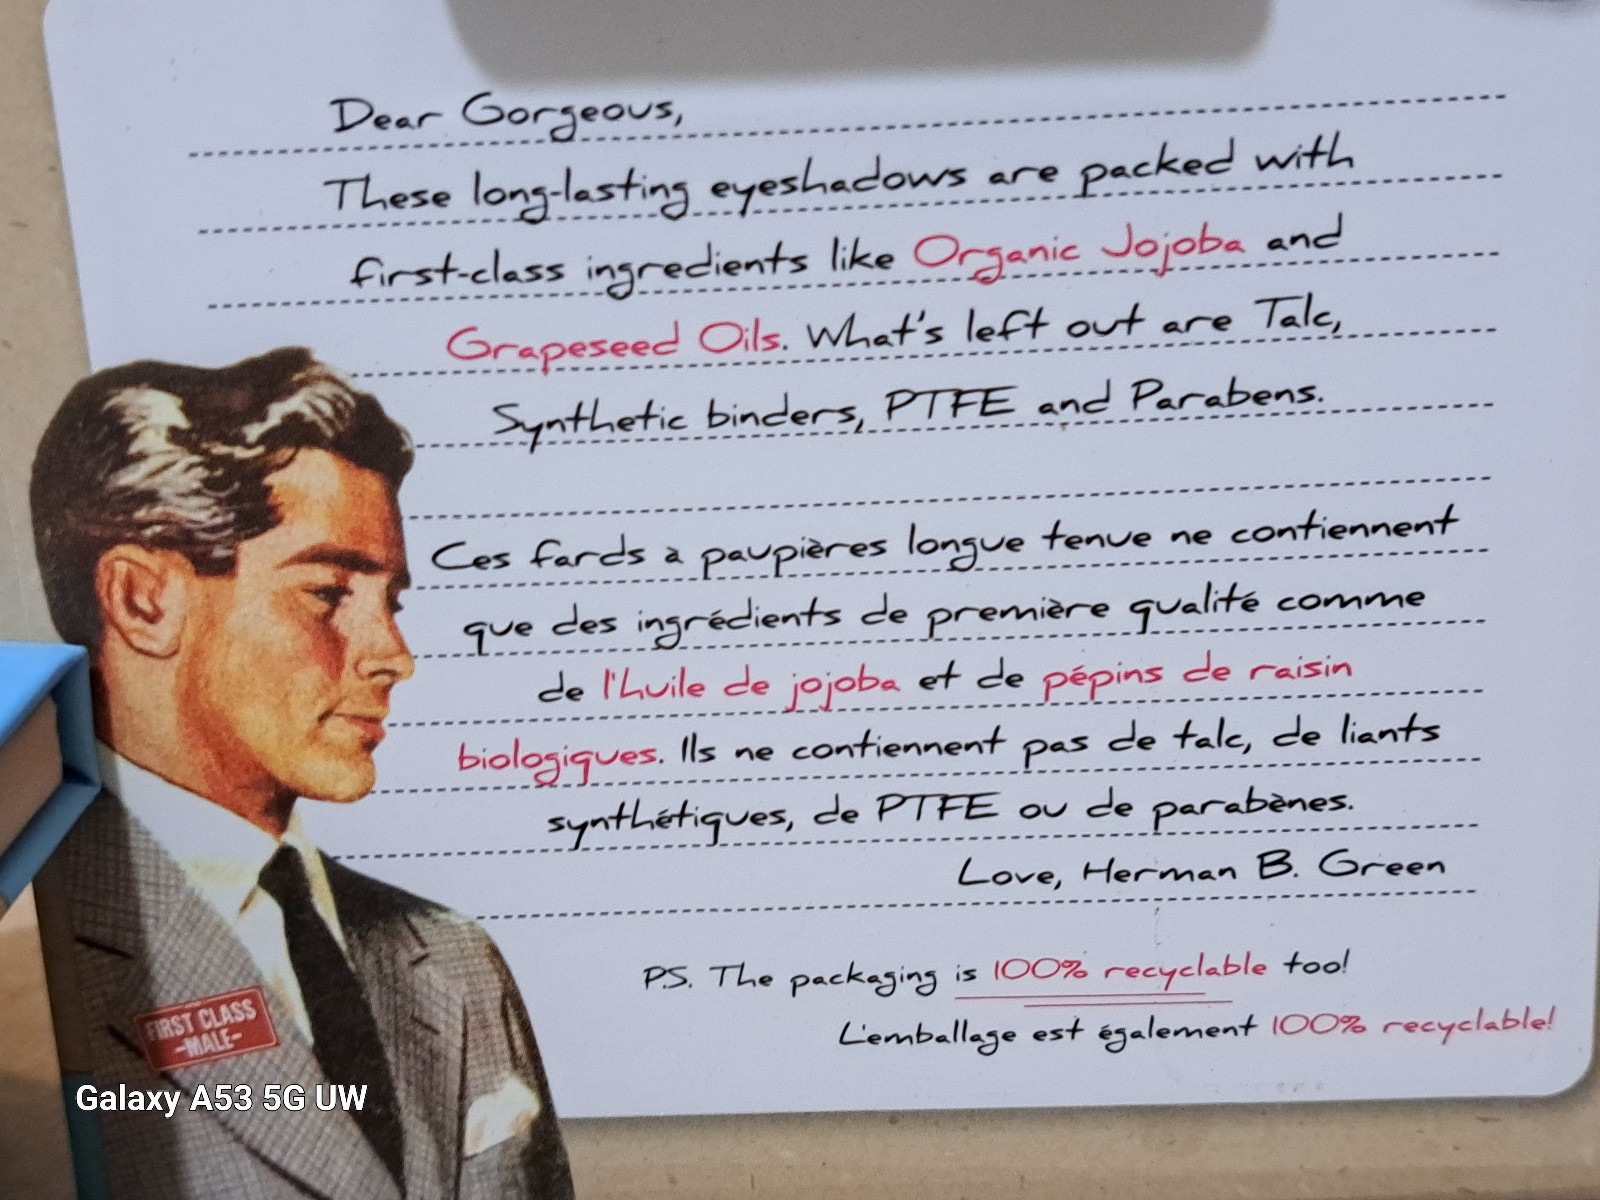 Dear Gorgeous,
These long-lasting eyeshadows are packed with
first-class ingredients like Organic Jojoba and
Grapeseed Oils. What's left out are Talc,
Synthetic binders, PTFE and Parabens.
Ces fards à paupières longue tenue ne contiennent
que des ingrédients de première qualité comme
de l'huile de jojoba et de pépins de raisin
biologiques. Ils ne contiennent pas de talc, de liants
synthétiques, de PTFE ou de parabènes.
Love, Herman B. Green
P.S. The packaging is 100% recyclable too!
L'emballage est également 100% recyclable!
FIRST CLASS
-MALE-
Galaxy A53 5G UW